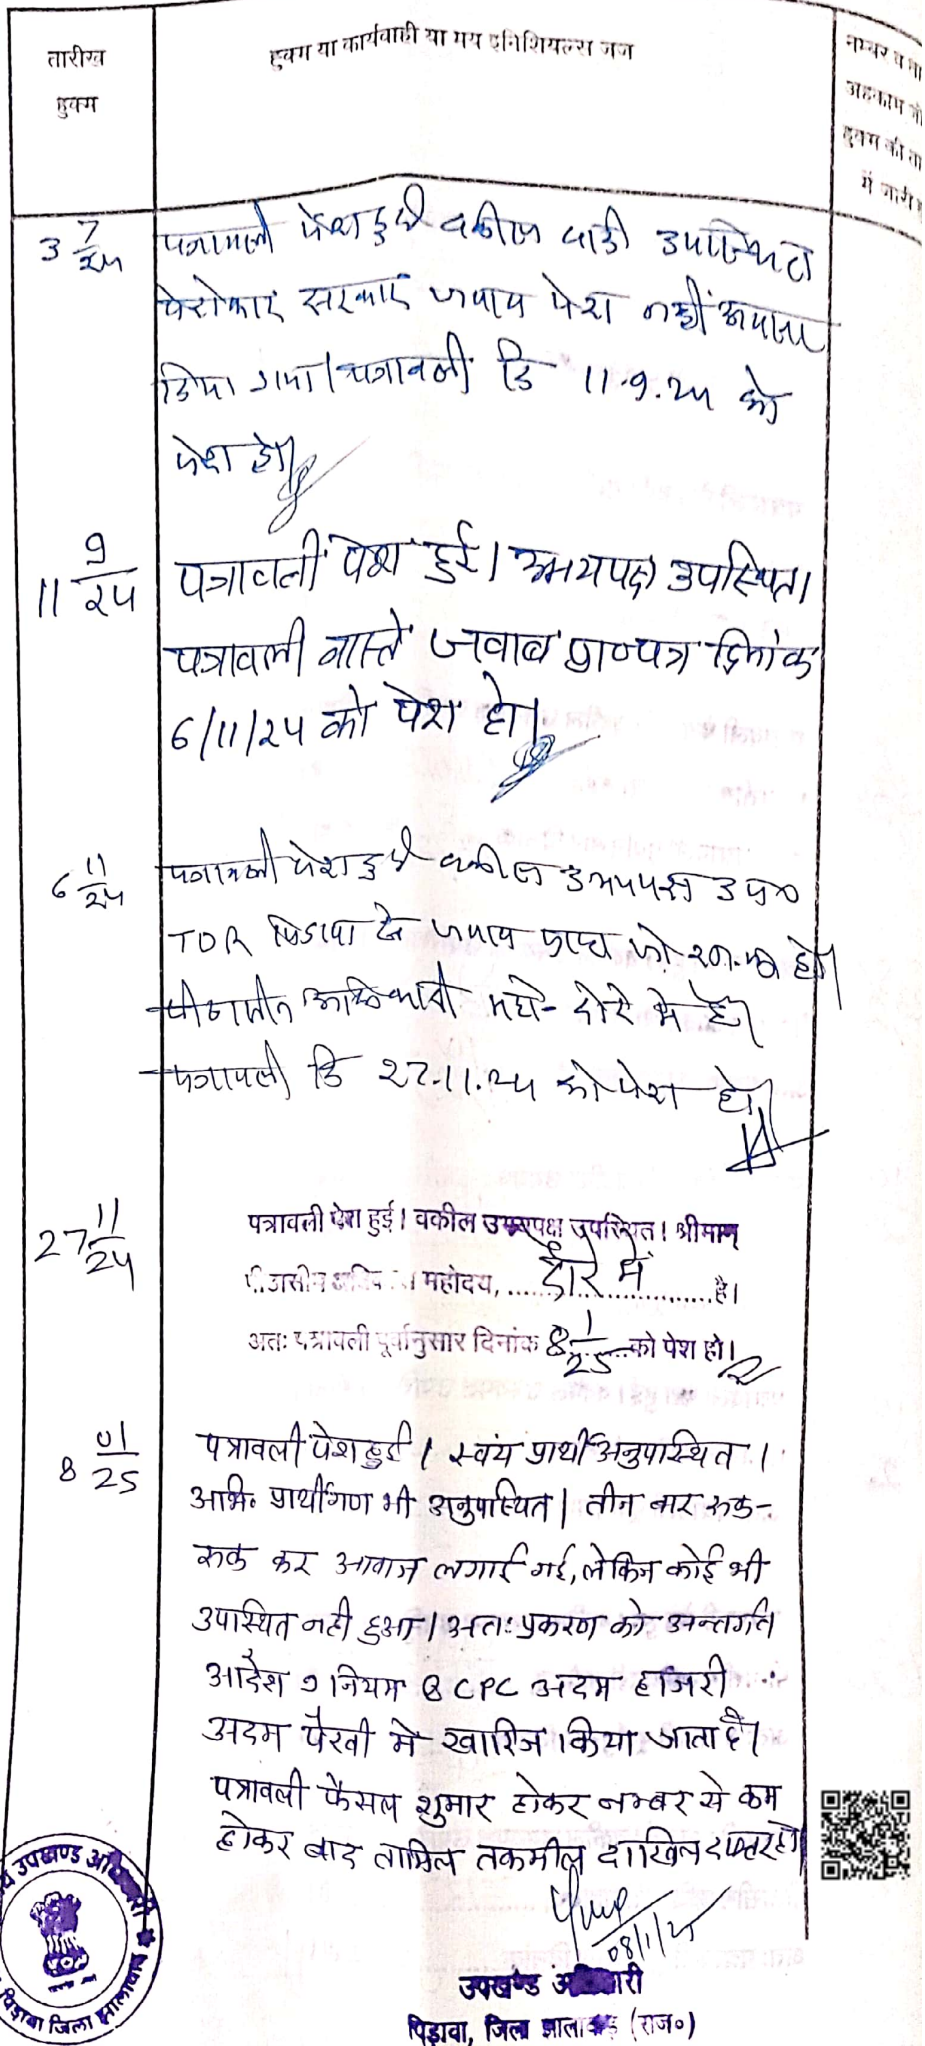 तारीख
हुक्म
हुक्म या कार्यवाही या मय इनिशियल्स जज
नम्बर व ता
अहकाम जो
हुक्म की ता
में जारी
3 7/24
पत्रावली पेश हुई वकील वादी उपस्थित
पेरोकार सरकार जवाब पेश नहीं
किया गया। पत्रावली दि 11.9.24 को
पेश हो।
11 9/24
पत्रावली पेश हुई। उभयपक्ष उपस्थित।
पत्रावली वास्ते जवाब प्रा०पत्र दिनांक
6/11/24 को पेश हो।
6 11/24
पत्रावली पेश हुई वकील उभयपक्ष उप०
TDR पिडावा के जवाब को हो।
पीठासीन अधिकारी महो- दौरे मे है।
पत्रावली दि 27.11.24 को पेश हो।
27 11/24
पत्रावली पेश हुई। वकील उभयपक्ष उपस्थित। श्रीमान्
पीठासीन महोदय, दौरे में है।
अतः पत्रावली पूर्वानुसार दिनांक 8 1/25 को पेश हो।
8 01/25
पत्रावली पेश हुई। स्वयं प्रार्थी अनुपास्थित।
अभि० प्रार्थीगण भी अनुपास्थित। तीन बार रूक-
रूक कर आवाज लगाई गई, लेकिन कोई भी
उपास्थित नही हुआ। अतः प्रकरण को अन्तर्गत
आदेश 9 नियम 8 CPC अदम हाजरी
अदम पैरवी मे खारिज किया जाता है।
पत्रावली फैसल शुमार होकर नम्बर से कम
होकर बाद तामिल तकमील दाखिल दफ्तर हो।
08/1/25
उपखण्ड अधिकारी
पिड़ावा, जिला झालावाड़ (राज०)
उपखण्ड अधिकारी
पिड़ावा जिला झालावाड़